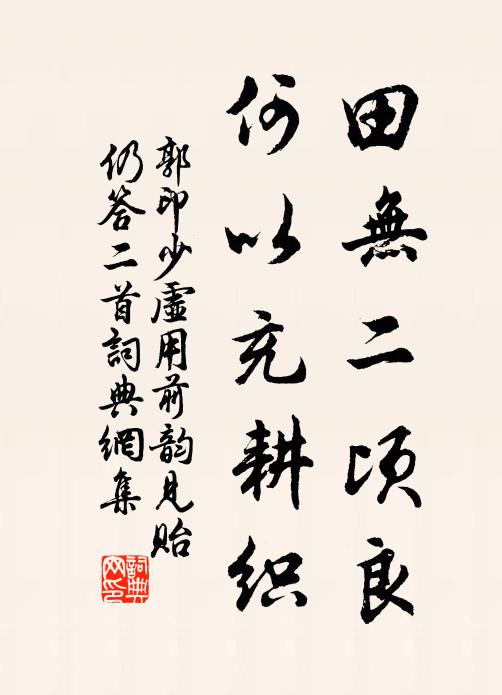 田無二頃良
何以充耕織
郭印少虛用前韵見貽
仍答二首詞典網集
詞典
网印